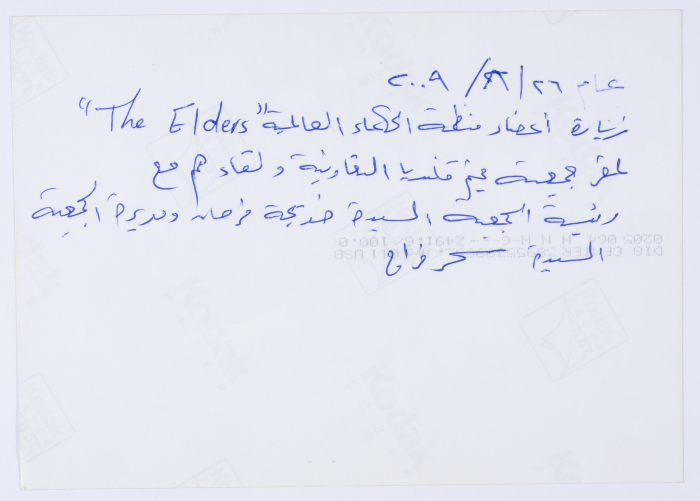 عام ٢٦/٨/٢٠٠٩
زيارة أعضاء منظمة الحكماء العالمية "The Elders"
لمقر جمعية مخيم قلنديا التعاونية ولقاءهم مع
رئيسة الجمعية السيدة خديجة فرحان ومديرة الجمعية
السيدة سحر
DIG CENTER
0205 064 N N N
Kodak